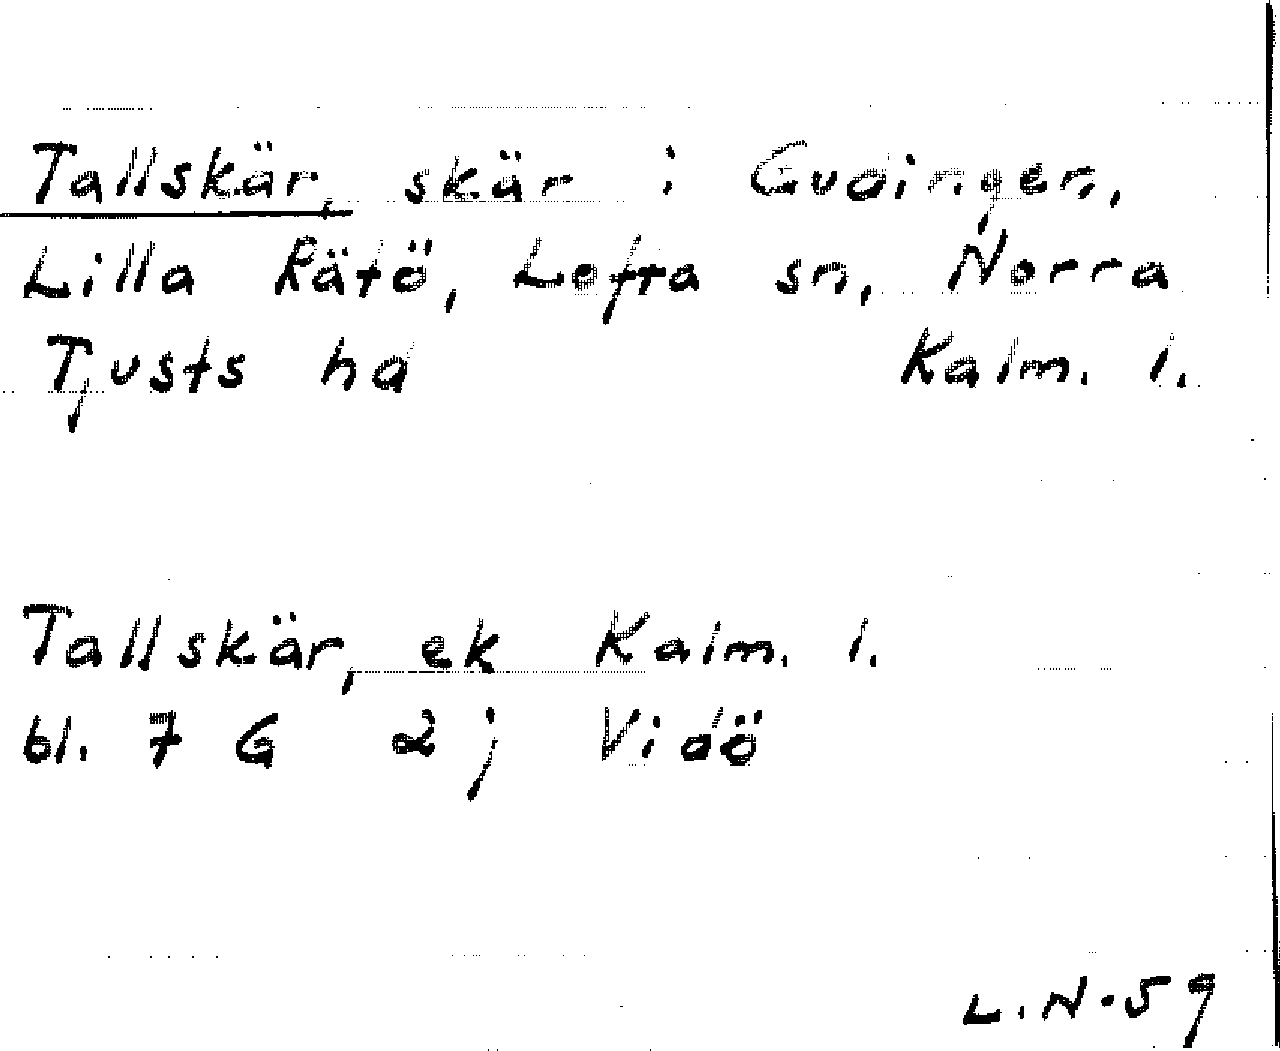 Tallskär, skär i Gudingen,
Lilla Rätö, Lofta sn, Norra
Tjusts hd Kalm. l.
Tallskär, ek Kalm. l.
bl. 7 G 2 j Vidö
L.N.59